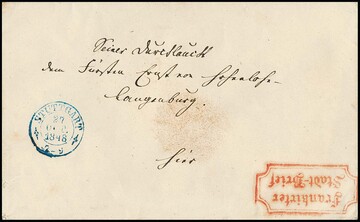 Seiner Durchlaucht
dem Fürsten Ernst von Hohenlohe-
Langenburg.
hier
STUTTGART
27
1848
Frankirter
Stadt-Brief